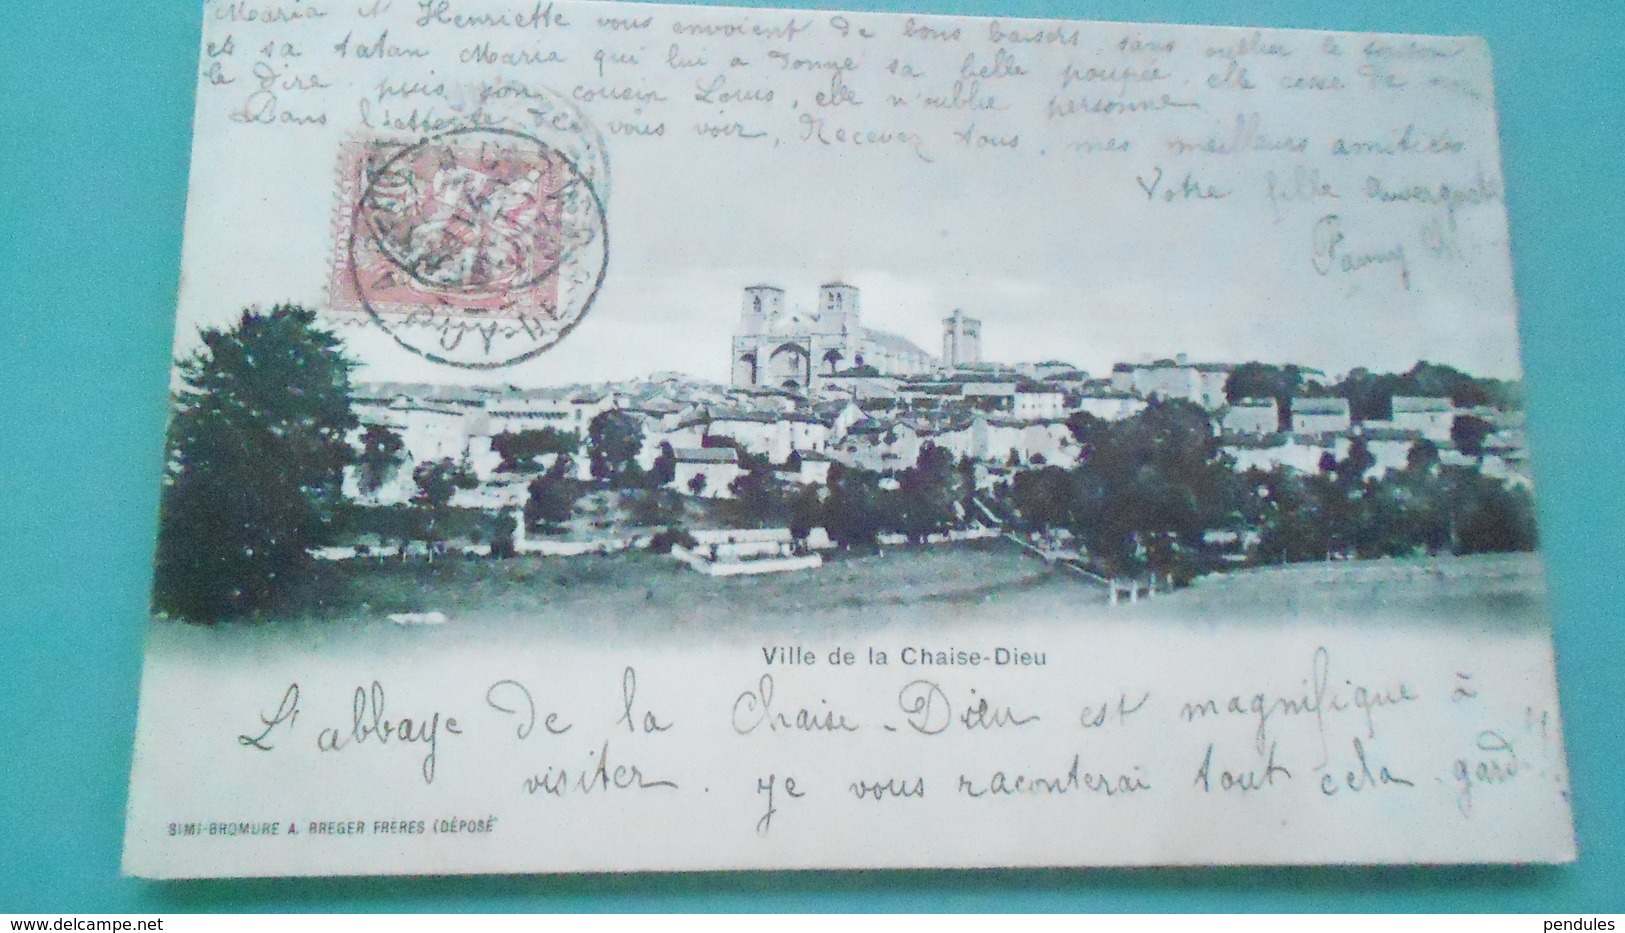 Maria et Henriette vous envoient de bons baisers sans oublier le tonton
et sa tatan Maria qui lui a donné sa belle poupée. elle cesse de
le dire. puis son cousin Louis, elle n'oublie personne
Dans l'attente de vous voir, Recevez tous, mes meilleurs amitiées
Votre fille
Fanny
Ville de la Chaise-Dieu
L'abbaye de la Chaise-Dieu est magnifique à
visiter. je vous raconterai tout cela
SIMI-BROMURE A. BREGER FRÈRES (DÉPOSÉ
pendules